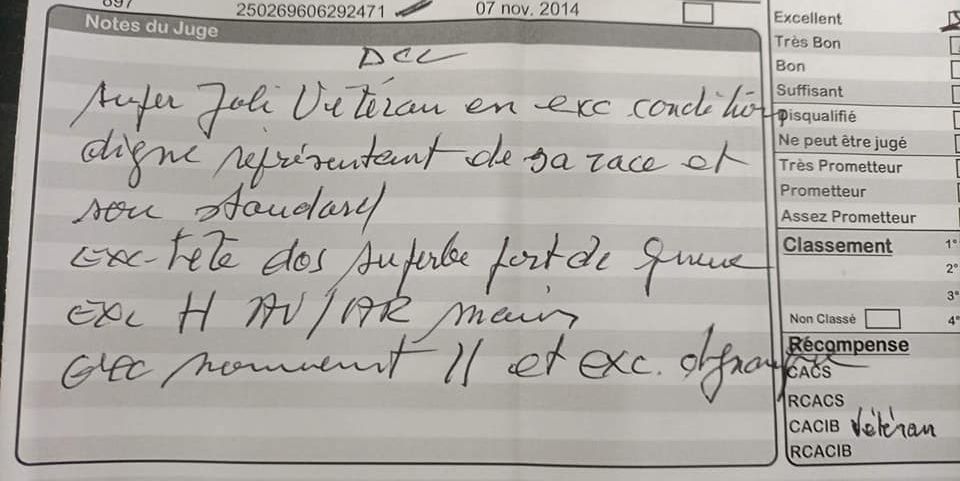 250269606292471 07 nov. 2014
Notes du Juge
DCC
super Joli Vétéran en exc condition
digne représentant de sa race et
son standard
exc-tête dos superbe port de queue
exc H AV/AR mais
exc mouvement // et exc.
Excellent
Très Bon
Bon
Suffisant
Disqualifié
Ne peut être jugé
Très Prometteur
Prometteur
Assez Prometteur
Classement
1°
2°
3°
Non Classé 4°
Récompense
CACS
RCACS
CACIB Vétéran
RCACIB